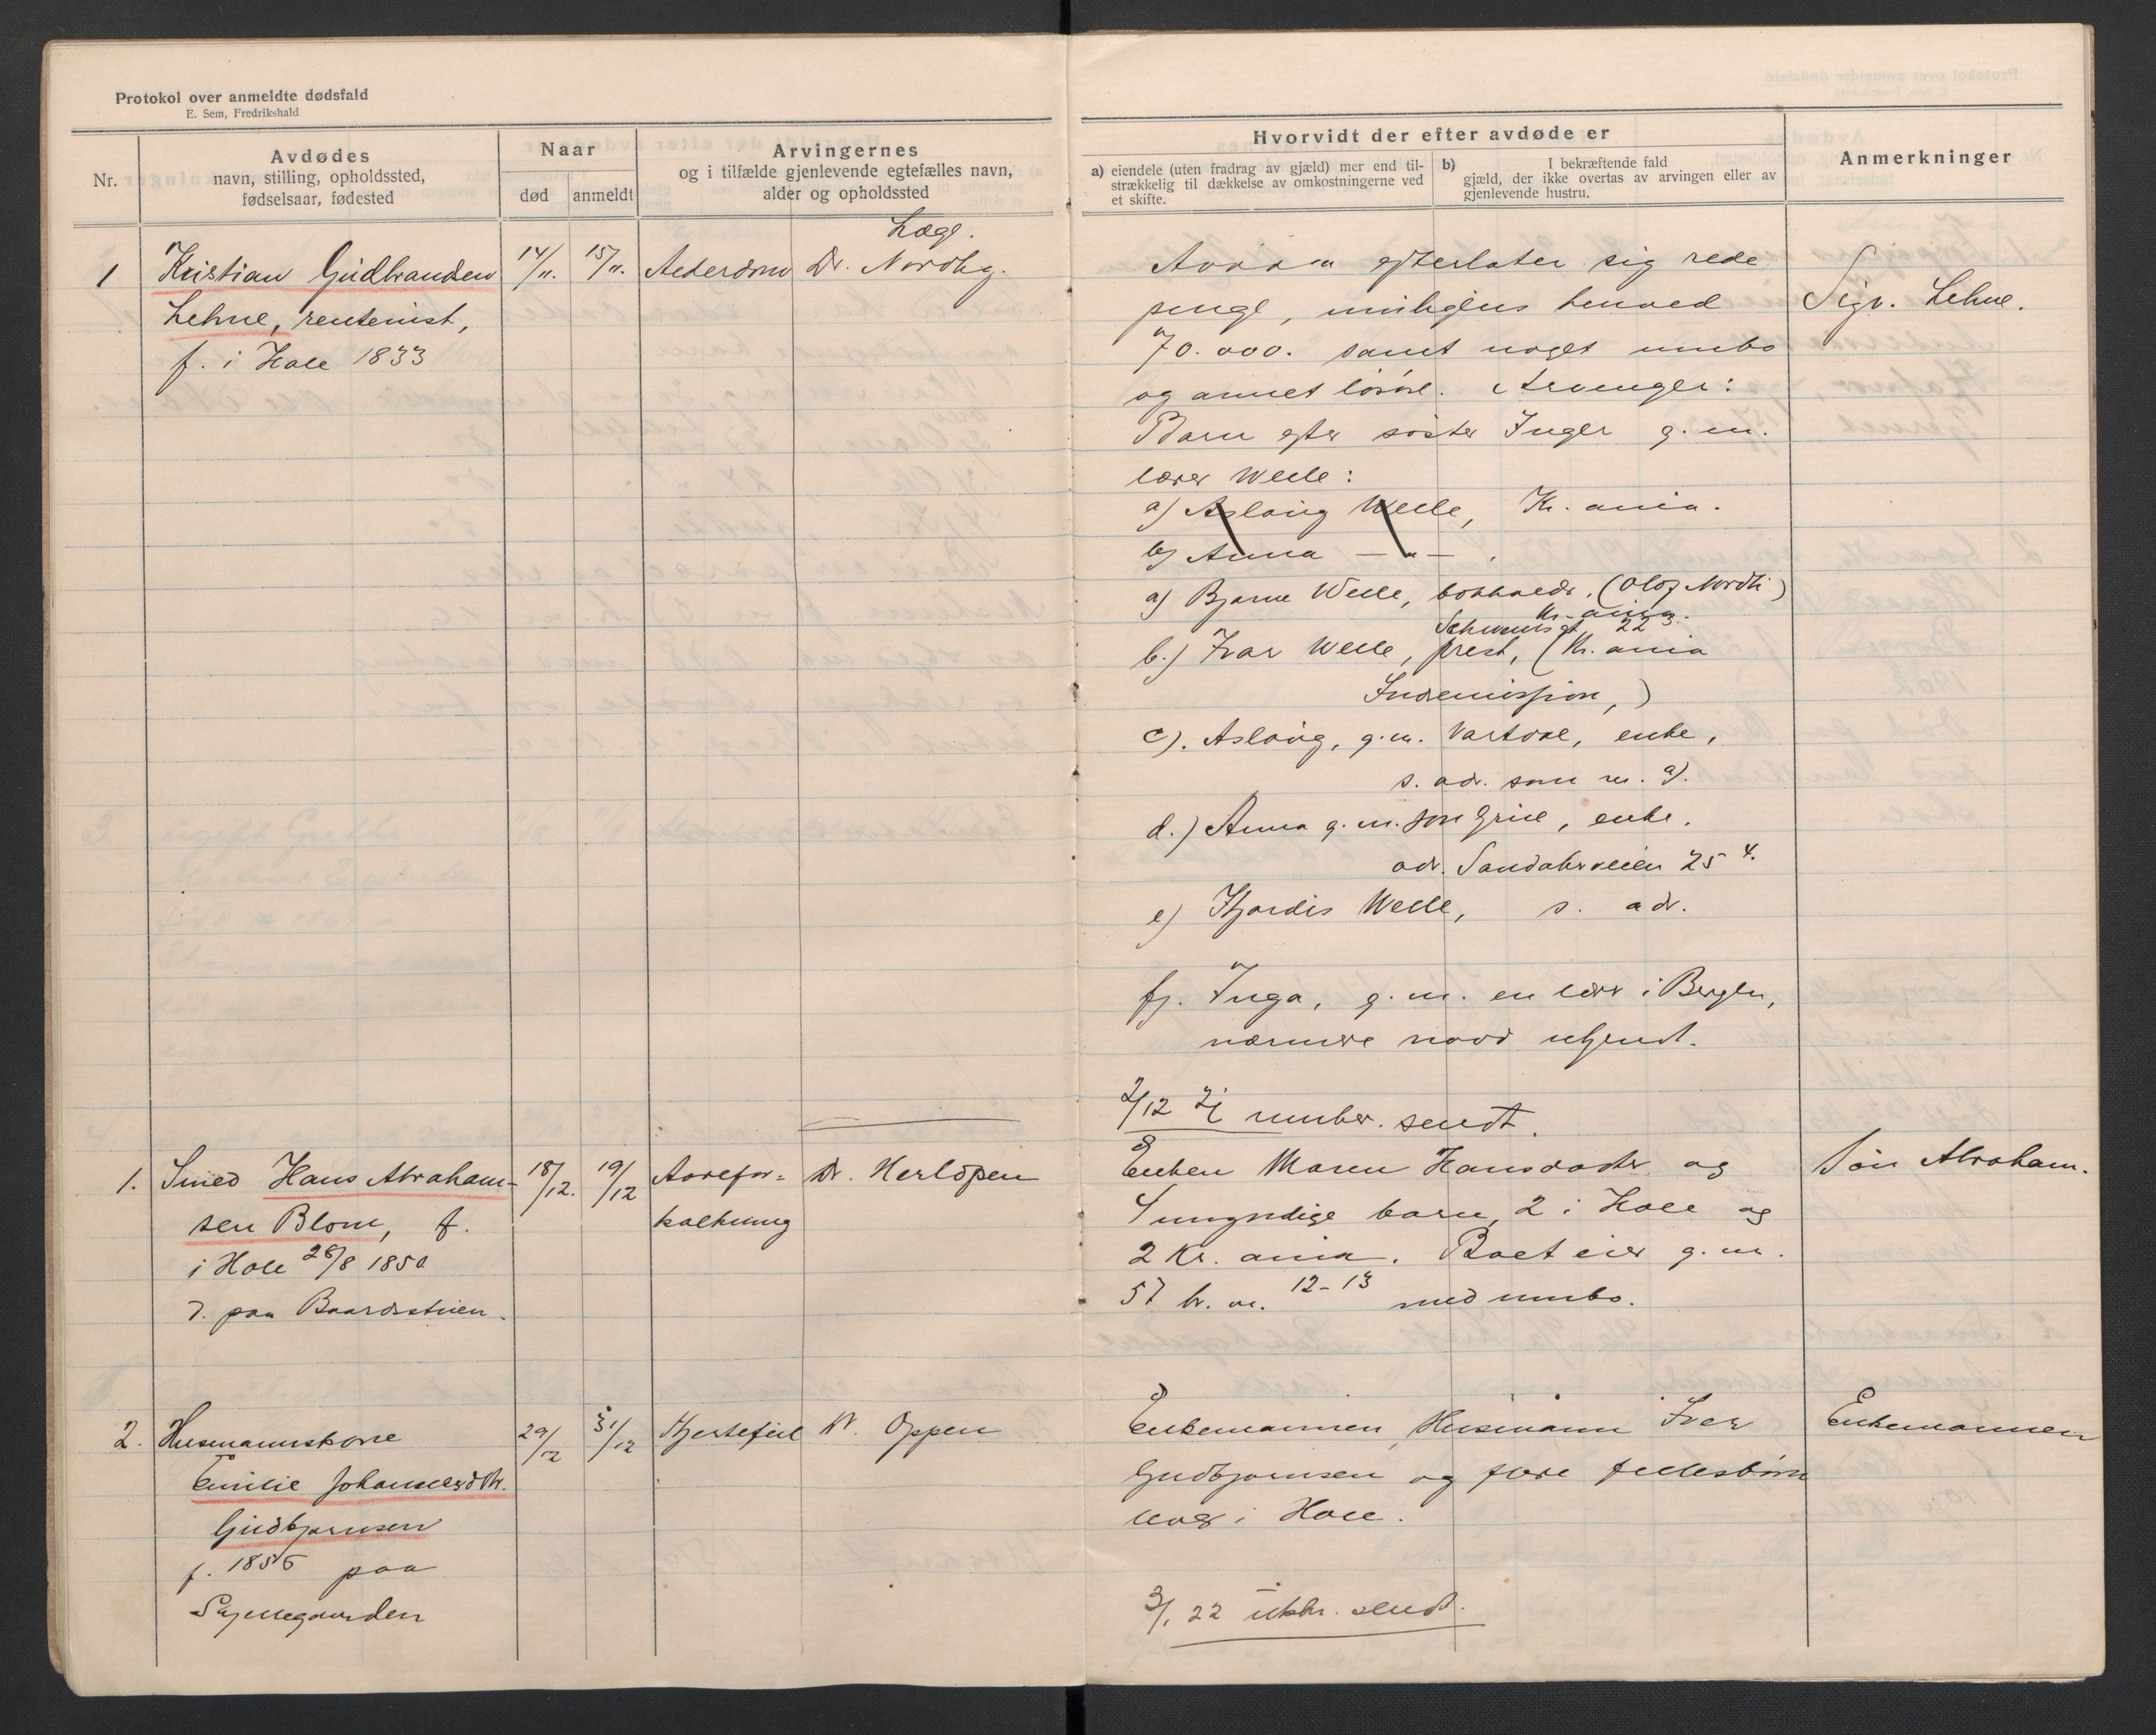 Protokol over anmeldte dødsfald
E. Sem, Fredrikshald
Nr.
Avdødes
navn, stilling, opholdssted,
fødselsaar, fødested
Naar
død
anmeldt
Arvingernes
og i tilfælde gjenlevende egtefælles navn,
alder og opholdssted
Hvorvidt der efter avdøde er
a) eiendele (uten fradrag av gjæld) mer end til-
strækkelig til dækkelse av omkostningerne ved
et skifte.
b) I bekræftende fald
gjæld, der ikke overtas av arvingen eller av
gjenlevende hustru.
Anmerkninger
Læge.
1 Kristian Gudbrandsen 14/11. 15/11. Alderdom Dr. Nordby.
Lehne, rentenist,
f. i Hole 1833
efterlater sig rede
penge, henved
70.000. samt noget innbo
og annet løsøre. Arvinger:
Barn efter søster Inger g. m.
lærer Welle:
a) Aslaug Welle, Kr. ania.
b) Anna — " — .
a) Bjarne Welle, bokholdr. (Olaf Nordli)
Kr. ania.
Schweigsgt 22 3.
b.) Ivar Welle, prest, (Kr. ania
Indremission,)
c). Aslaug, g. m. Vartdal, enke,
s. adr. som nr. a).
d.) Anna g. m. enke.
adr. Sandakerveien 25 4.
e) Hjordis Welle, s. adr.
f). Inga, g. m. en lærer i Bergen,
nærmere navn ukjendt.
2/12 21 innber. sendt.
Sigv. Lehne.
1. Smed Hans Abraham- 18/12. 19/12 Aarefor= Dr. Herlofsen
sen Blom, f. kalkning
i Hole 28/8 1850
d. paa Baardsstuen.
Enken Maren Hansdatter og
4 myndige barn, 2 i Hole og
2 Kr. ania. Boet eier g. nr.
57 br. nr. 12-13 med innbo.
Søn Abraham.
2. Husmannskone 29/12 31/12 Hjertefeil Dr. Oppen
Emilie Johannesdtr.
Gudbjørnsen
f. 1856 paa
Enkemannen, Husmann Iver
Gudbjørnsen og flere fellesbørn
i Hole.
3/1 22 inbr. sendt.
Enkemannen